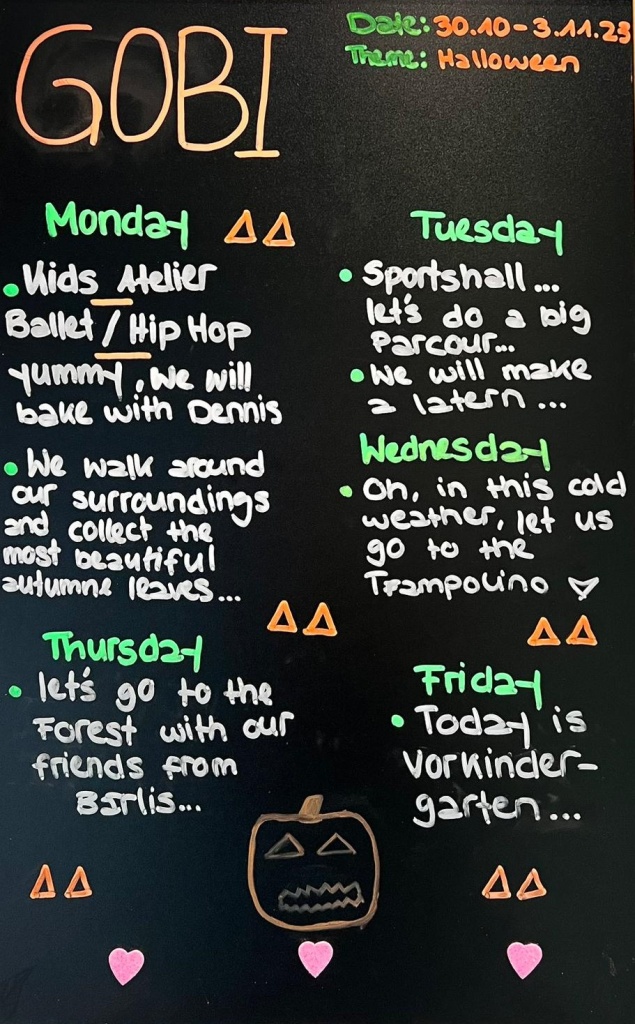 GOBI
Date: 30.10 - 3.11.23
Theme: Halloween
Monday
• Kids Atelier
Ballet / Hip Hop
yummy, We will
bake with Dennis
• We walk around
our surroundings
and collect the
most beautiful
autumne leaves...
Tuesday
• Sportshall...
let's do a big
Parcour...
• We will make
a latern...
Wednesday
• Oh, in this cold
weather, let us
go to the
Trampolino
Thursday
• let's go to the
Forest with our
friends from
Bärlis...
Friday
• Today is
Vorkinder-
garten...